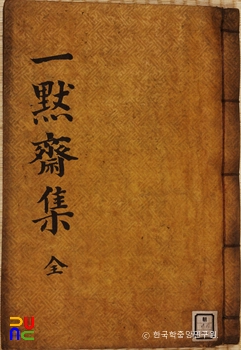 一黙齋集 全
ⓒ 한국학중앙연구원